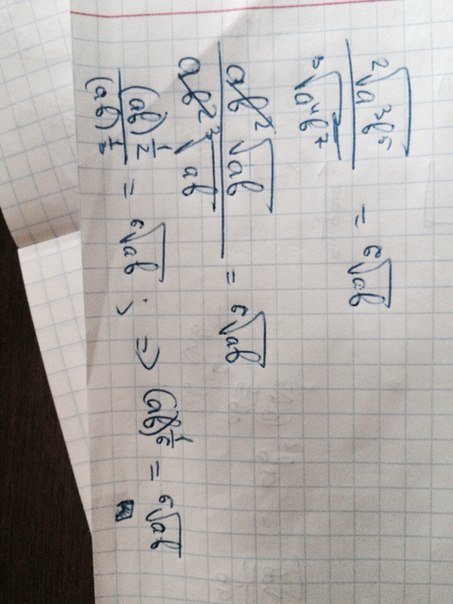 \frac{\sqrt[2]{a^3b^5}}{\sqrt[3]{a^4b^7}} = \sqrt[6]{ab}
\frac{ab^2\sqrt{ab}}{ab^2\sqrt[3]{ab}} = \sqrt[6]{ab}
\frac{(ab)^{\frac{1}{2}}}{(ab)^{\frac{1}{3}}} = \sqrt[6]{ab} ; => (ab)^{\frac{1}{6}} = \sqrt[6]{ab}